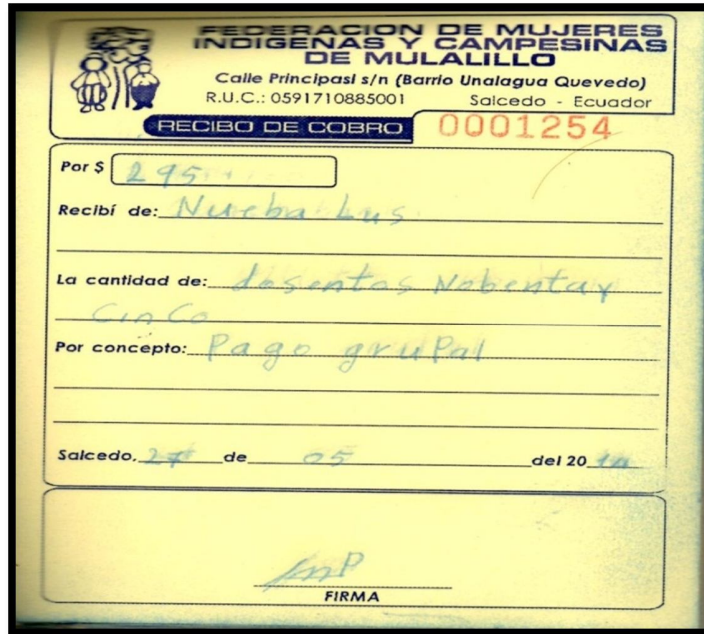 FEDERACION DE MUJERES
INDIGENAS Y CAMPESINAS
DE MULALILLO
Calle Principasl s/n (Barrio Unalagua Quevedo)
R.U.C.: 0591710885001 Salcedo - Ecuador
RECIBO DE COBRO 0001254
Por $ 295
Recibí de: Nueba Lus
La cantidad de: dosentos Nobentay
CinCo
Por concepto: Pago gruPal
Salcedo, 27 de 05 del 20
FIRMA